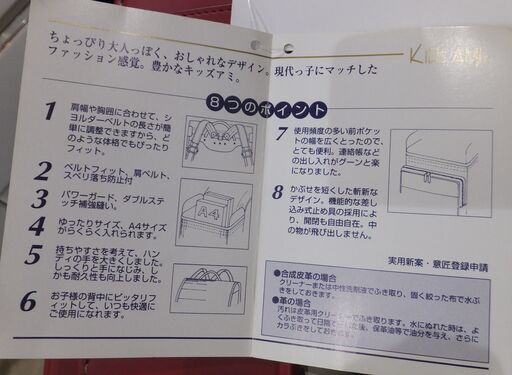 ちょっぴり大人っぽく、おしゃれなデザイン。現代っ子にマッチした
ファッション感覚。豊かなキッズアミ。
KIDS AMI
8つのポイント
1 肩幅や胸囲に合わせて、シ
ョルダーベルトの長さが簡
単に調整できますから、ど
のような体格でもぴったり
フィット。
2 ベルトフィット、肩ベルト、
スベリ落ち防止付
3 パワーガード、ダブルステ
ッチ補強縫い。
4 ゆったりサイズ、A4サイズ
がらくらく入れられます。
A4
5 持ちやすさを考えて、ハン
ディの手を大きくしました。
しっくりと手になじみ、し
かも耐久性も向上しました。
6 お子様の背中にピッタリフ
ィットして、いつも快適に
ご使用になれます。
7 使用頻度の多い前ポケッ
トの幅を広くとったので、
とても便利。連絡帳など
の出し入れがグーンと楽
になりました。
8 かぶせを短くした斬新な
デザイン。機能的な差し
込み式止め具の採用によ
り、開閉も自由自在。中
の物が飛び出しません。
実用新案・意匠登録申請
●合成皮革の場合
クリーナーまたは中性洗剤液でふき取り、固く絞った布で水ぶ
きをしておきます。
●革の場合
汚れは皮革用クリーナーでふき取ります。水にぬれた時は、よ
くふき取って日陰で た後、保革油等で油分を与え、さらに
カラぶきをしておきます。